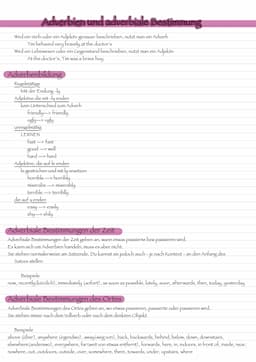 Adverbien und adverbiale Bestimmung
Wird ein Verb oder ein Adjektiv genauer beschrieben, nutzt man ein Adverb
Tim behaved very bravely at the doctor's
Wird ein Lebewesen oder ein Gegenstand beschrieben, nutzt man ein Adjektiv
At the doctor's, Tim was a brave boy.
Adverbienbildung
Regelmäßige
Mit der Endung -ly
Adjektive, die mit -ly enden
kein Unterschied zum Adverb
friendly → friendly
ugly → ugly
unregelmäßig
LERNEN
fast → fast
good → well
hard → hard
Adjektive, die auf le enden
le gestrichen und mit ly ersetzen
horrible → horribly
miserable → miserably
terrible → terribly
die auf y enden
easy → easily
shy → shily
Adverbiale Bestimmungen der Zeit
Adverbiale Bestimmungen der Zeit geben an, wann etwas passierte bzw passieren wird.
Es kann sich um Adverbien handeln, muss es aber nicht.
Sie stehen normalerweise am Satzende. Du kannst sie jedoch auch - je nach Kontext - an den Anfang des
Satzes stellen
Beispiele
now, recently (kürzlich), immediately (sofort), as soon as possible, lately, soon, afterwards, then, today, yesterday
Adverbiale Bestimmungen des Ortes
Adverbiale Bestimmungen des Ortes geben an, wo etwas passieren, passierte oder passieren wird.
Sie stehen immer nach dem Vollverb oder nach dem direkten Objekt
Beispiele
above (über), anywhere (irgendwo), away(weg von), back, backwards, behind, below, down, downstairs,
elsewhere(anderswo), everywhere, far(weit von etwas entfernt), forwards, here, in, indoors, in front of, inside, near,
nowhere, out, outdoors, outside, over, somewhere, there, towards, under, upstairs, where